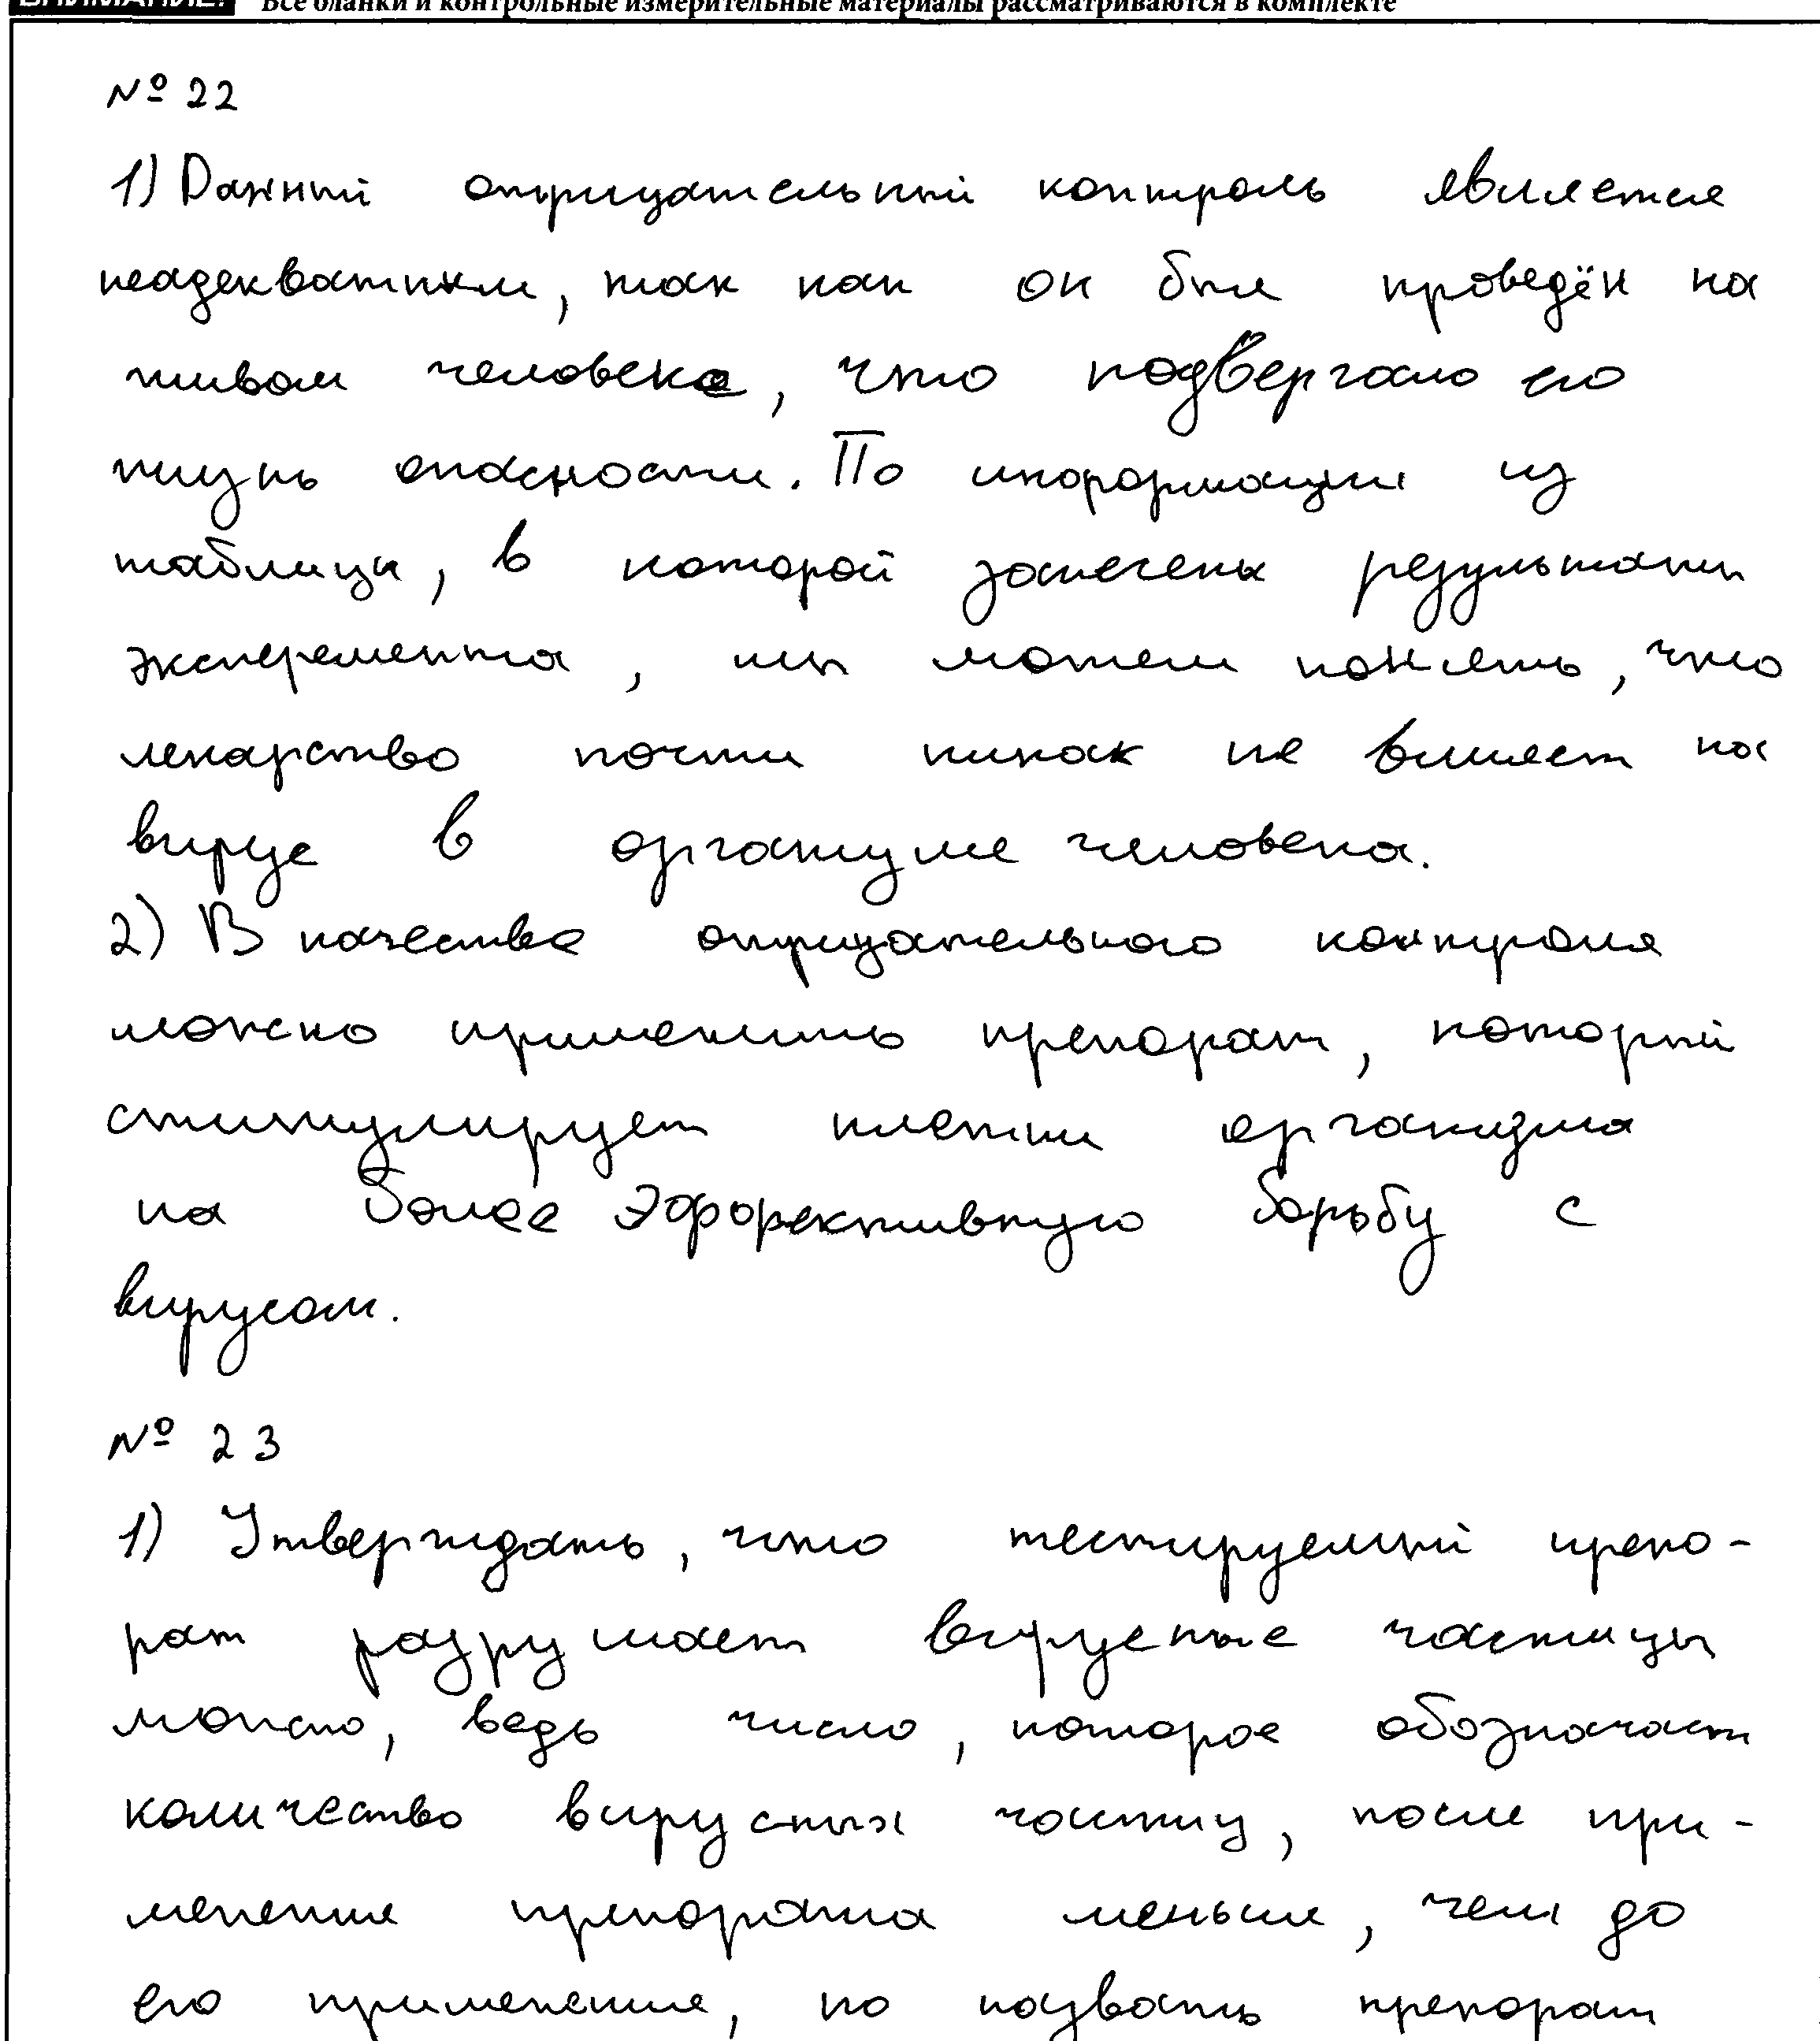 ВНИМАНИЕ! Все бланки и контрольные измерительные материалы рассматриваются в комплекте
№ 22
1) Данный отрицательный контроль является
неадекватным, так как он был проведён на
живом человеке, что подвергало его
жизнь опасности. По информации из
таблицы, в которой замечены результаты
эксперемента, мы можем понять, что
лекарство почти никак не влияет на
вирус в организме человека.
2) В качестве отрицательного контроля
можно применить препарат, который
стимулирует клетки организма
на более эффективную борьбу с
вирусом.
№ 23
1) Утверждать, что тестируемый препо-
рат разрушает вирусные частицы
можно, ведь число, которое обозначает
количество вирусных частиц, после при-
менение препората меньше, чем до
его применение, но назвать препорат